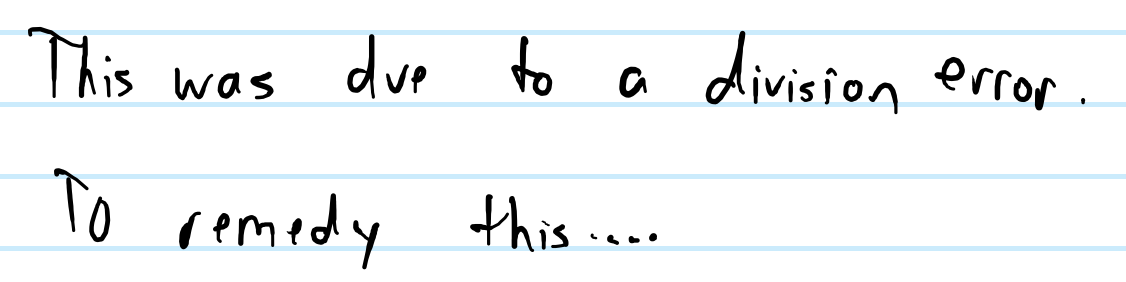 This was due to a division error.
To remedy this.....